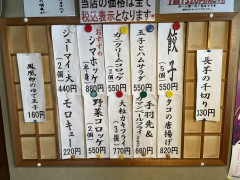 当店の価格は全て
税込表示となります
長芋の千切り
330円
餃子
(5個)
550円
タコの唐揚げ
820円
玉子とハムサラダ
550円
手羽先&
660円
カニクリームコロッケ
(2個)
550円
大粒カキフライ
(3個)
770円
おすすめ
シマホッケ
880円
野菜コロッケ
(2個)
550円
シューマイ大
(2個)
440円
モロキュー
220円
鳳凰卵のゆで玉子
160円